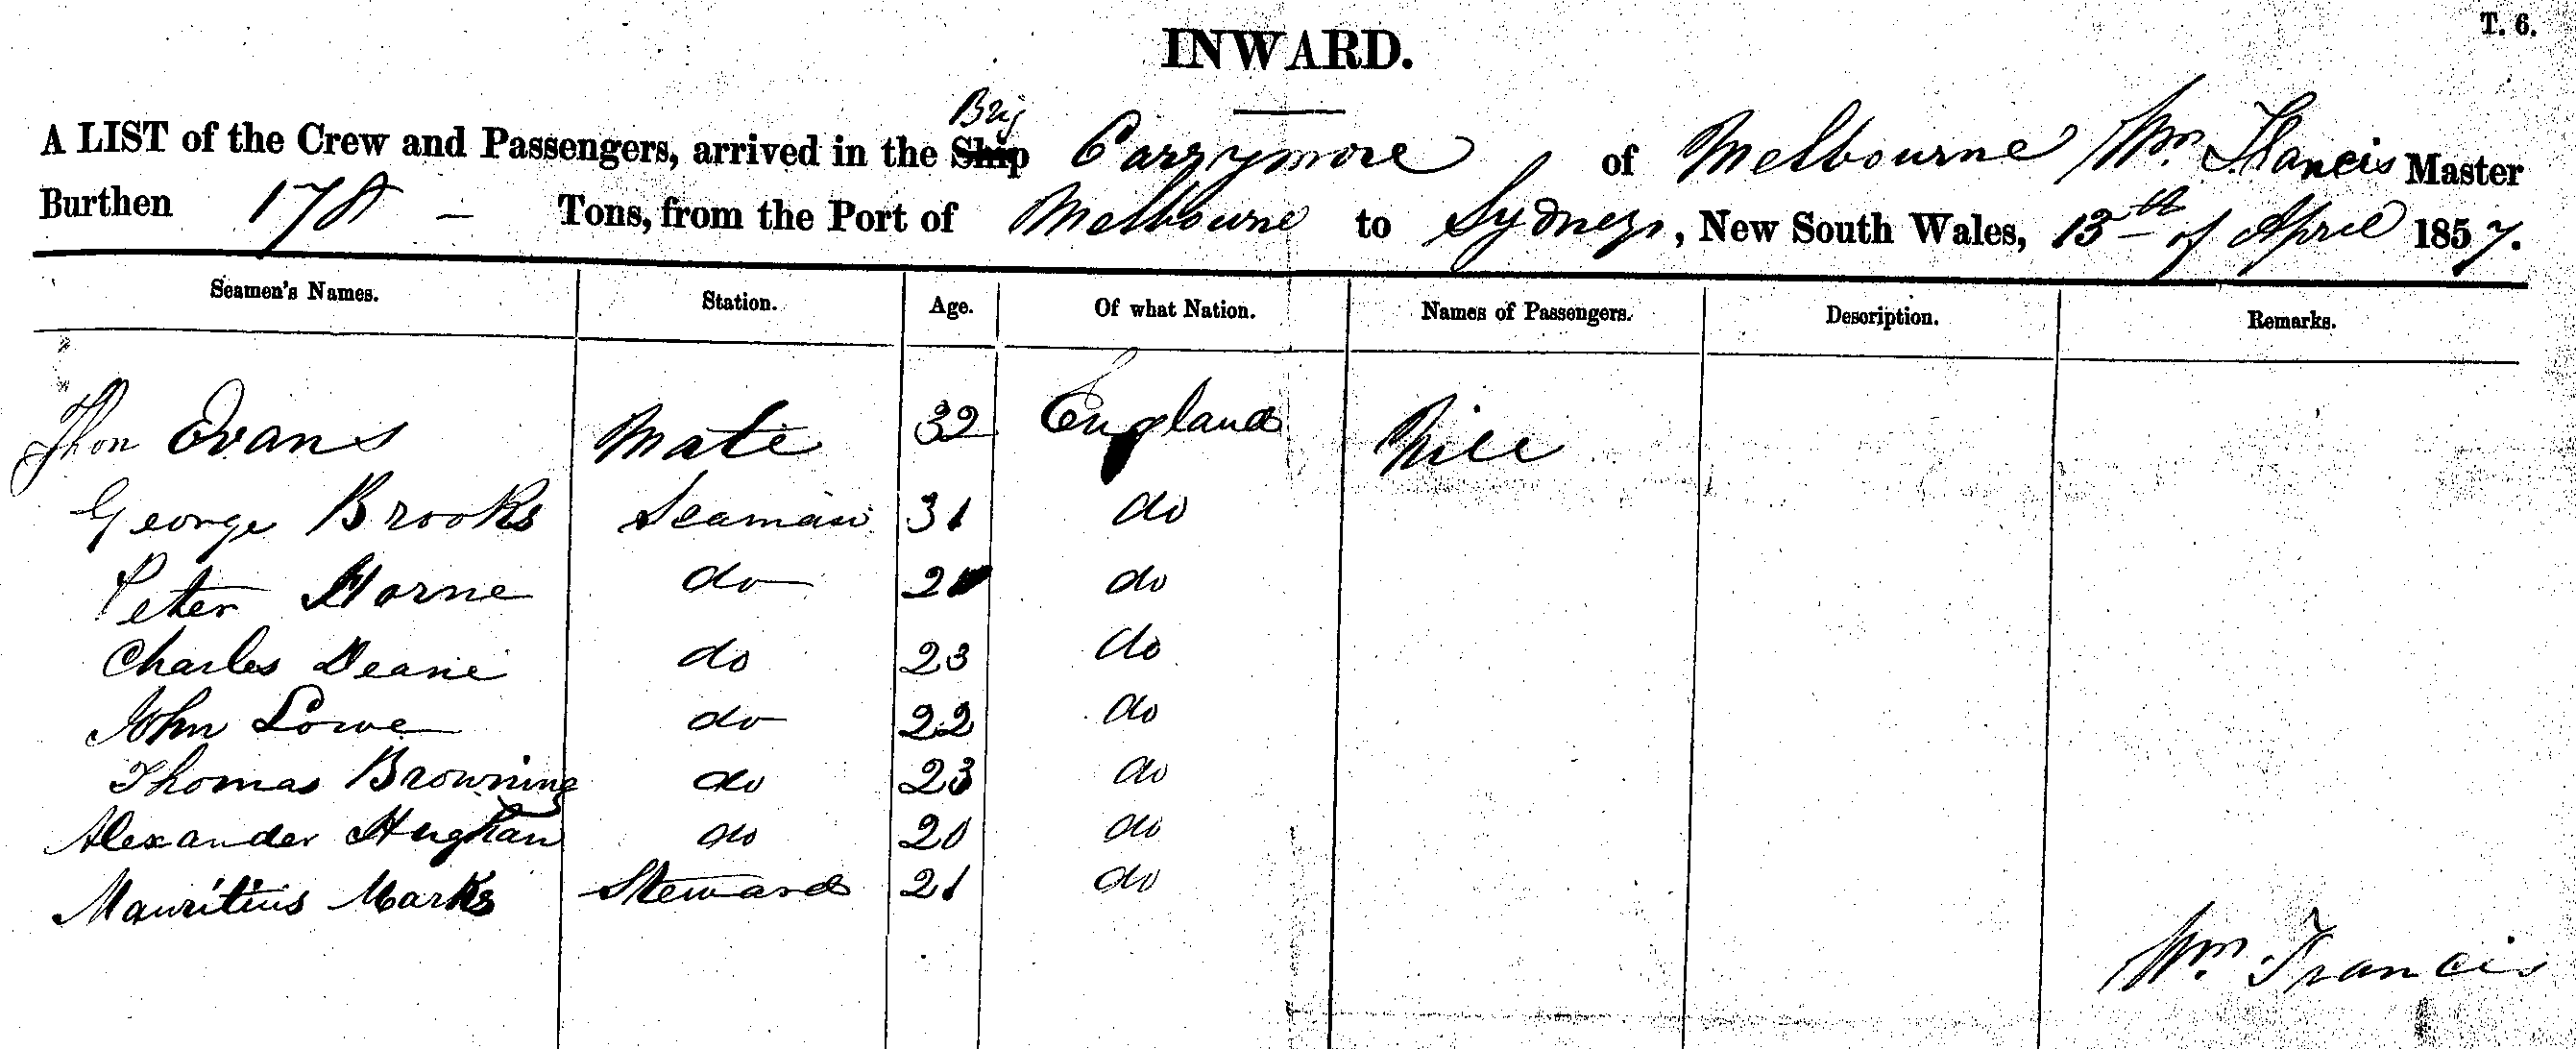 T. 6.
INWARD.
Brig
A LIST of the Crew and Passengers, arrived in the Ship Carrymore of Melbourne Wm. Francis Master
Burthen 178 – Tons, from the Port of Melbourne to Sydney, New South Wales, 13th of April 1857.
Seamen's Names. Station. Age. Of what Nation. Names of Passengers. Description. Remarks.
Jhon Evans Mate 32 England Nill
George Brooks Seaman 31 do
Peter Horne do do
Charles Deane do 23 do
John Lowe do 22 do
Thomas Browning do 23 do
Alexander Hughan do 20 do
Mauritius Marks Steward 21 do
Wm. Francis